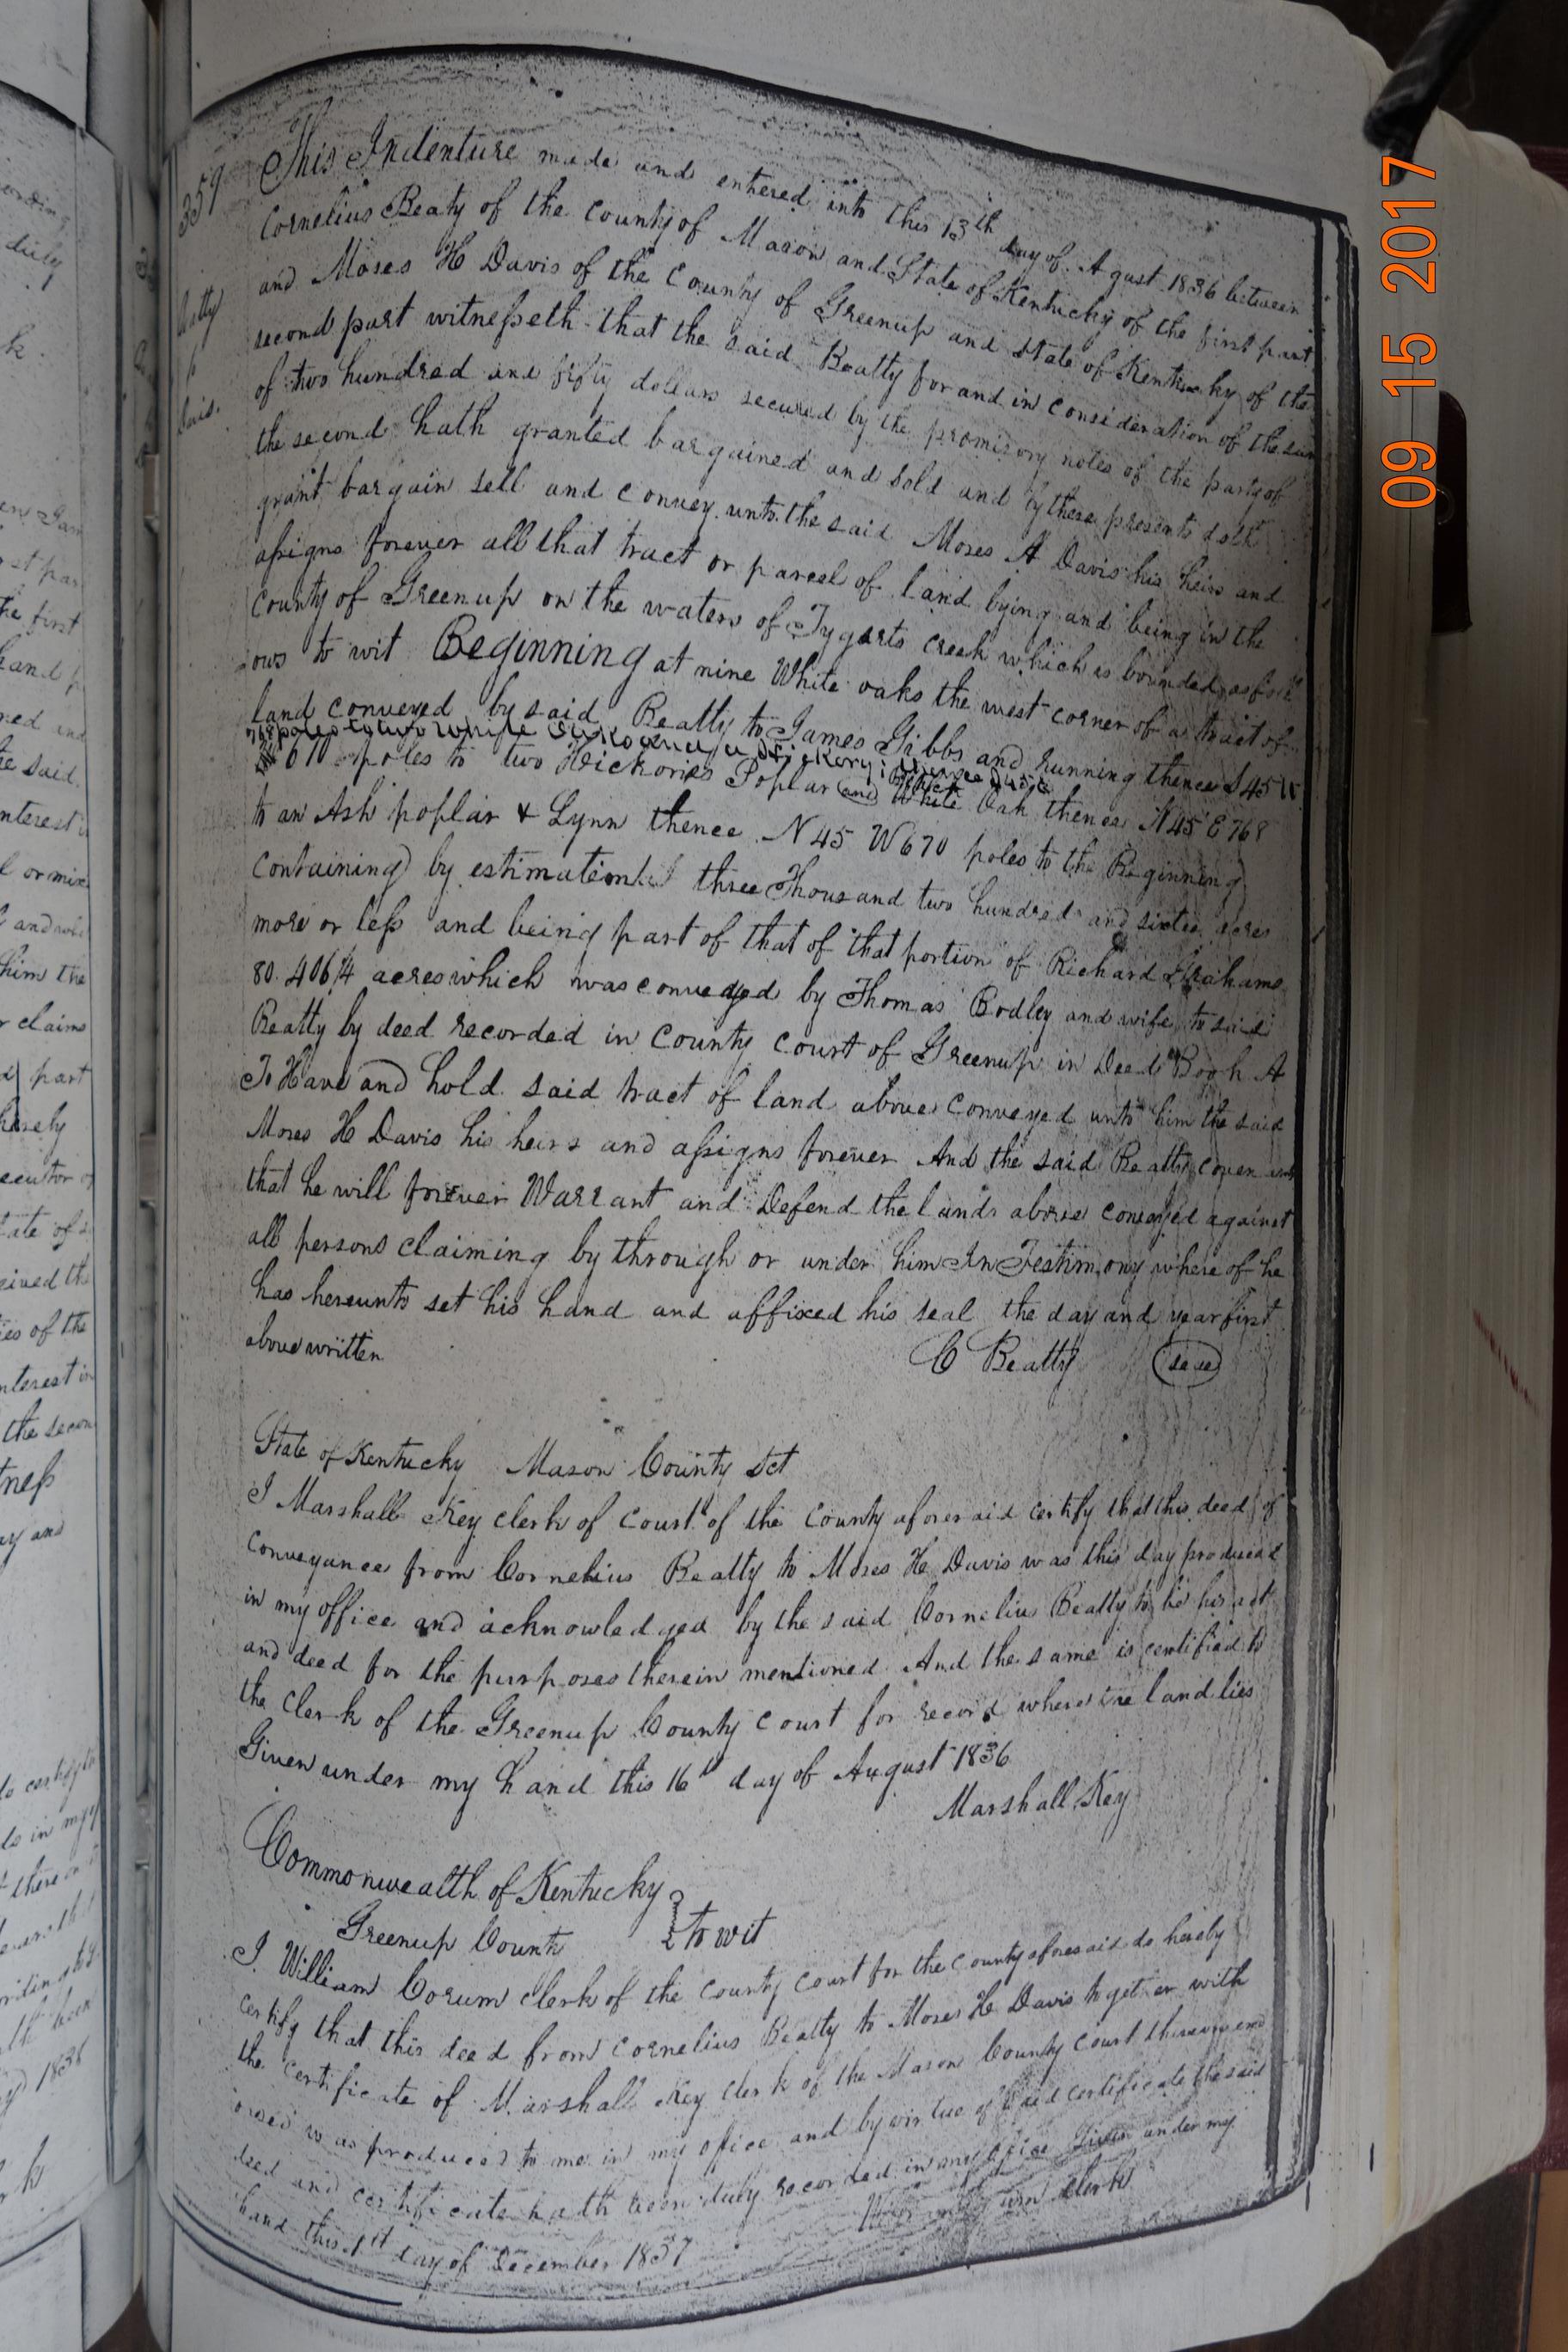 359
This Indenture made and entered into this 13th day of Agust 1836 between
Cornelius Beaty of the County of Mason and State of Kentucky of the first part
and Moses H Davis of the County of Greenup and State of Kentucky of the
second part witnesseth that the said Beatty for and in consideration of the sum
of two hundred and fifty dollars secured by the promisory notes of the party of
the second hath granted bargained and sold and by these presents doth
grant bargain sell and convey unto the said Moses H Davis his heirs and
assigns forever all that tract or parcel of land lying and being in the
County of Greenup on the waters of Tygarts creek which is bounded as foll
ows to wit Beginning at nine White oaks the west corner of a tract of
land conveyed by said Beatty to James Gibbs and running thence S 45 W
768 poles to two White Oaks and a Hickory; thence
670 poles to two Hickories Poplar and White Oak thence N 45 E 768
to an Ash poplar & Lynn thence N 45 W 670 poles to the Beginning
containing by estimation three Thousand two hundred and sixteen acres
more or less and being part of that of that portion of Richard Grahams
80.406¼ acres which was conveyed by Thomas Bodley and wife to said
Beatty by deed recorded in County Court of Greenup in Deed Book A
To Have and hold said tract of land above conveyed unto him the said
Moses H Davis his heirs and assigns forever And the said Beatty covenants
that he will forever Warrant and Defend the lands above conveyed against
all persons claiming by through or under him In Testimony where of he
has hereunto set his hand and affixed his seal the day and year first
above written
C Beatty seal
State of Kentucky Mason County Sct
I Marshall Key clerk of Court of the County aforesaid certify that this deed of
conveyance from Cornelius Beatty to Moses H Davis was this day produced
in my office and acknowledged by the said Cornelius Beatty to be his act
and deed for the purposes therein mentioned And the same is certified to
the Clerk of the Greenup County Court for record where the land lies
Given under my hand this 16th day of August 1836
Marshall Key
Commonwealth of Kentucky
Greenup County } to wit
I William Corum clerk of the County Court for the County aforesaid do hereby
certify that this deed from Cornelius Beatty to Moses H Davis together with
the certificate of Marshall Key clerk of the Mason County Court thereon end
orsed was produced to me in my office and by virtue of said certificate the said
deed and certificate hath been duly recorded in my office Given under my
hand this 1st day of December 1837
clerk
09 15 2017